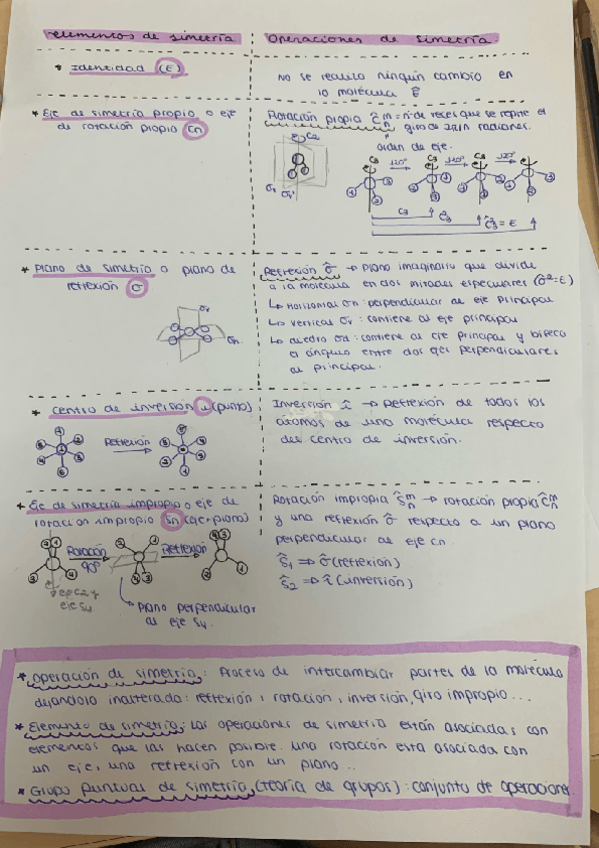 elementos de simetría
Operaciones de simetría.
* Identidad (E)
No se realiza ningún cambio en
la molécula Ê
* Eje de simetría propio o eje
de rotación propio Cn
Rotación propia Ĉnm = nº de veces que se repite el
giro de 2π/n radianes.
orden de eje.
C2
σv
σv'
C3 120° C3 120° C3 120° C3
1 2 3
C3
C3²
Ĉ3³ = E
* Plano de simetría o plano de
reflexión σ
σv
σh
Reflexión σ̂ → Plano imaginario que divide
a la molécula en dos mitades especulares (σ̂²=E)
↳ horizontal σh: perpendicular al eje principal
↳ vertical σv: contiene al eje principal
↳ diedro σd: contiene al eje principal y biseca
el ángulo entre dos ejes perpendiculares
al principal.
* Centro de inversión i (punto)
Reflexión
Inversión î → Reflexión de todos los
átomos de una molécula respecto
del centro de inversión.
* Eje de simetría impropio o eje de
rotación impropio Sn (eje+plano)
Rotación 90°
Reflexión
eje C2 y
eje S4
Plano perpendicular
al eje S4.
Rotación impropia Ŝnm → rotación propia Ĉnm
y una reflexión σ̂ respecto a un plano
perpendicular al eje Cn
Ŝ1 ⇒ σ̂ (reflexión)
Ŝ2 ⇒ î (inversión)
* Operación de simetría: Proceso de intercambiar partes de la molécula
dejándola inalterada: reflexión, rotación, inversión, giro impropio...
* Elemento de simetría: Las operaciones de simetría están asociadas con
elementos que las hacen posible. una rotación esta asociada con
un eje, una reflexión con un plano...
* Grupo puntual de simetría (teoría de grupos): conjunto de operaciones.